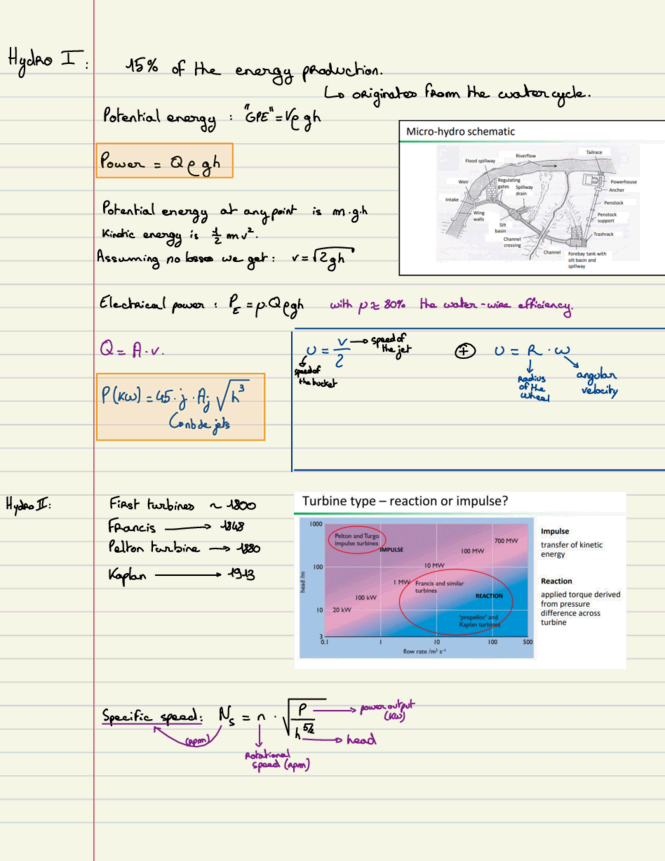 Hydro I :
15% of the energy production.
↳ originates from the water cycle.
Potential energy : "GPE" = Vρgh
Power = Qρgh
Micro-hydro schematic
Tailrace
Riverflow
Flood spillway
Weir
Regulating gates
Spillway drain
Powerhouse
Anchor
Intake
Penstock
Wing walls
Silt basin
Penstock support
Channel crossing
Trashrack
Channel
Forebay tank with silt basin and spillway
Potential energy at any point is m.g.h
Kinetic energy is ½ mv².
Assuming no losses we get : v = √2gh
Electrical power : P_E = μ.Qρgh with μ ≈ 80% the water-wire efficiency.
Q = A.v.
U = v/2 → speed of the jet
speed of the bucket
⊕ U = R . ω
radius of the wheel
angular velocity
P(kW) = 45. j . Aj √h³
↳ nb de jets
Hydro II :
First turbines ~ 1800
Francis → 1848
Pelton turbine → 1880
Kaplan → 1913
Turbine type – reaction or impulse?
1000
Pelton and Turgo impulse turbines
IMPULSE
700 MW
100 MW
100
10 MW
1 MW
Francis and similar turbines
100 kW
REACTION
10
20 kW
'propellor' and Kaplan turbines
3
head /m
0.1 1 10 100 500
flow rate /m³ s⁻¹
Impulse
transfer of kinetic
energy
Reaction
applied torque derived
from pressure
difference across
turbine
Specific speed : Ns = n . √(P / h^5/2)
(rpm)
power output (kW)
head
rotational speed (rpm)